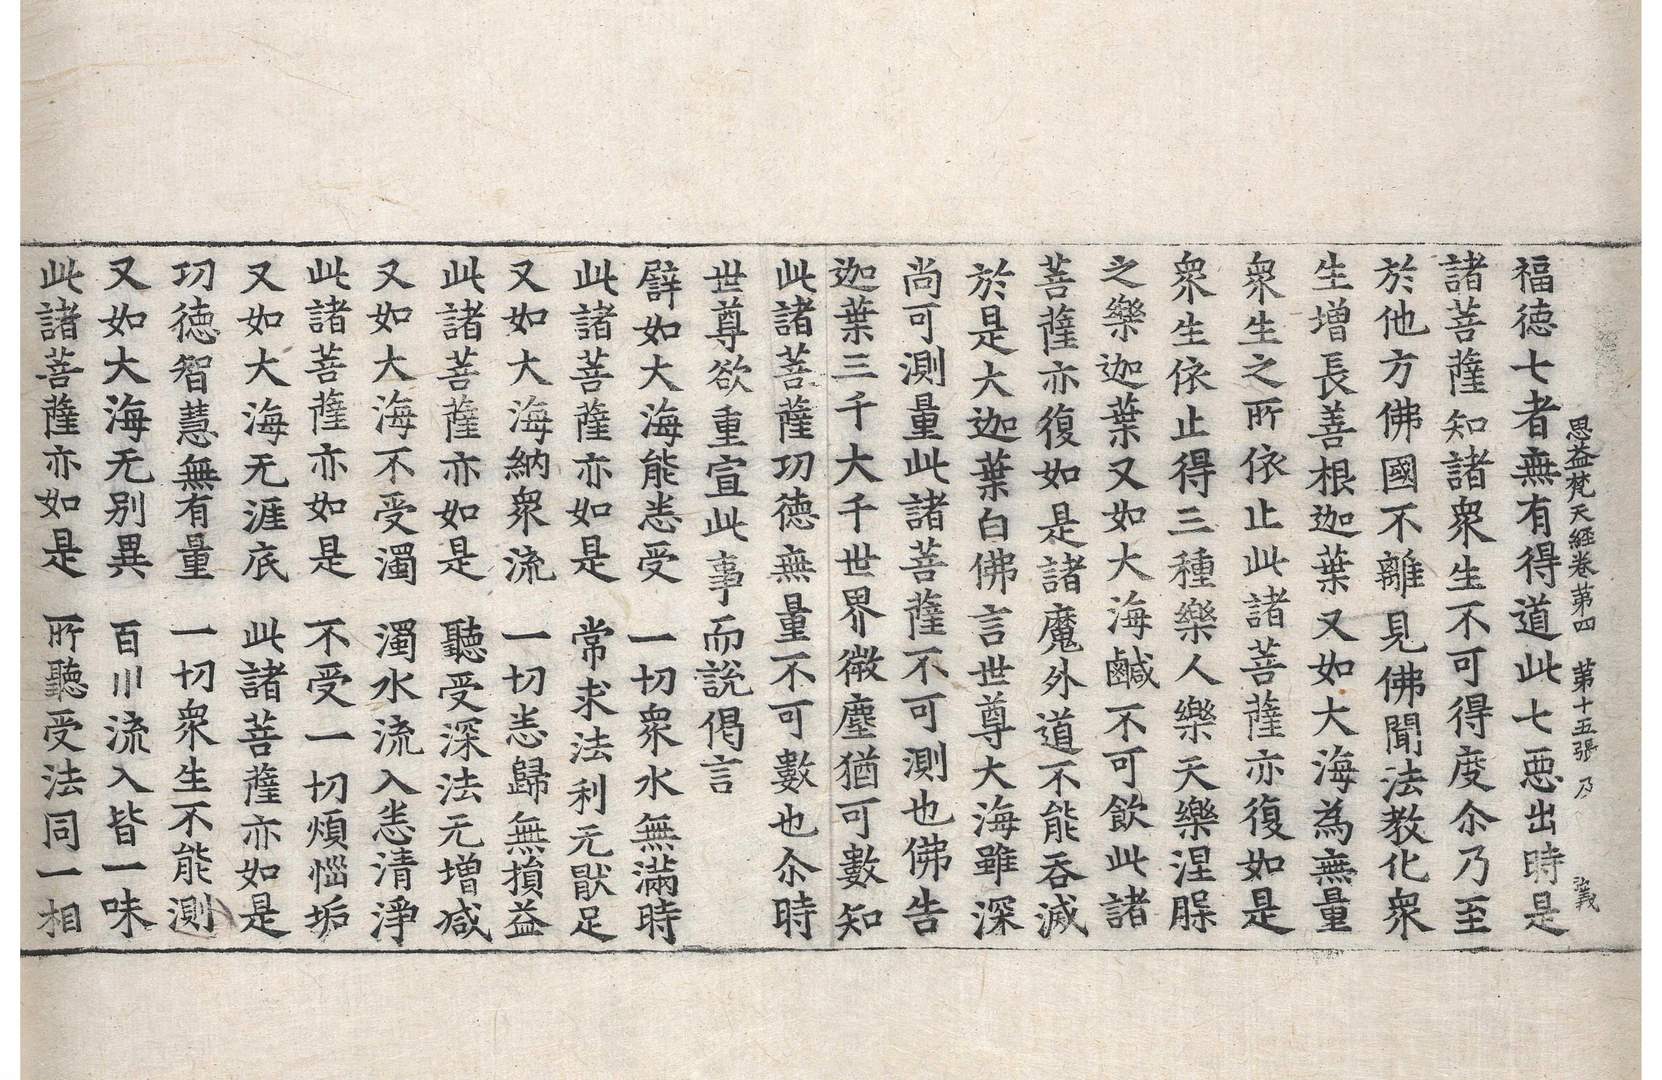 思益梵天經卷第四　第十五張　乃　義
福德七者無有得道此七惡出時是
諸菩薩知諸衆生不可得度尒乃至
於他方佛國不離見佛聞法教化衆
生增長善根迦葉又如大海為無量
衆生之所依止此諸菩薩亦復如是
衆生依止得三種樂人樂天樂涅槃
之樂迦葉又如大海鹹不可飲此諸
菩薩亦復如是諸魔外道不能吞滅
於是大迦葉白佛言世尊大海雖深
尚可測量此諸菩薩不可測也佛告
迦葉三千大千世界微塵猶可數知
此諸菩薩功德無量不可數也尒時
世尊欲重宣此事而說偈言
譬如大海能悉受　一切衆水無滿時
此諸菩薩亦如是　常求法利无猒足
又如大海納衆流　一切悉歸無損益
此諸菩薩亦如是　聽受深法无增减
又如大海不受濁　濁水流入悉清淨
此諸菩薩亦如是　不受一切煩惱垢
又如大海无涯底　此諸菩薩亦如是
功德智慧無有量　一切衆生不能測
又如大海无別異　百川流入皆一味
此諸菩薩亦如是　所聽受法同一相